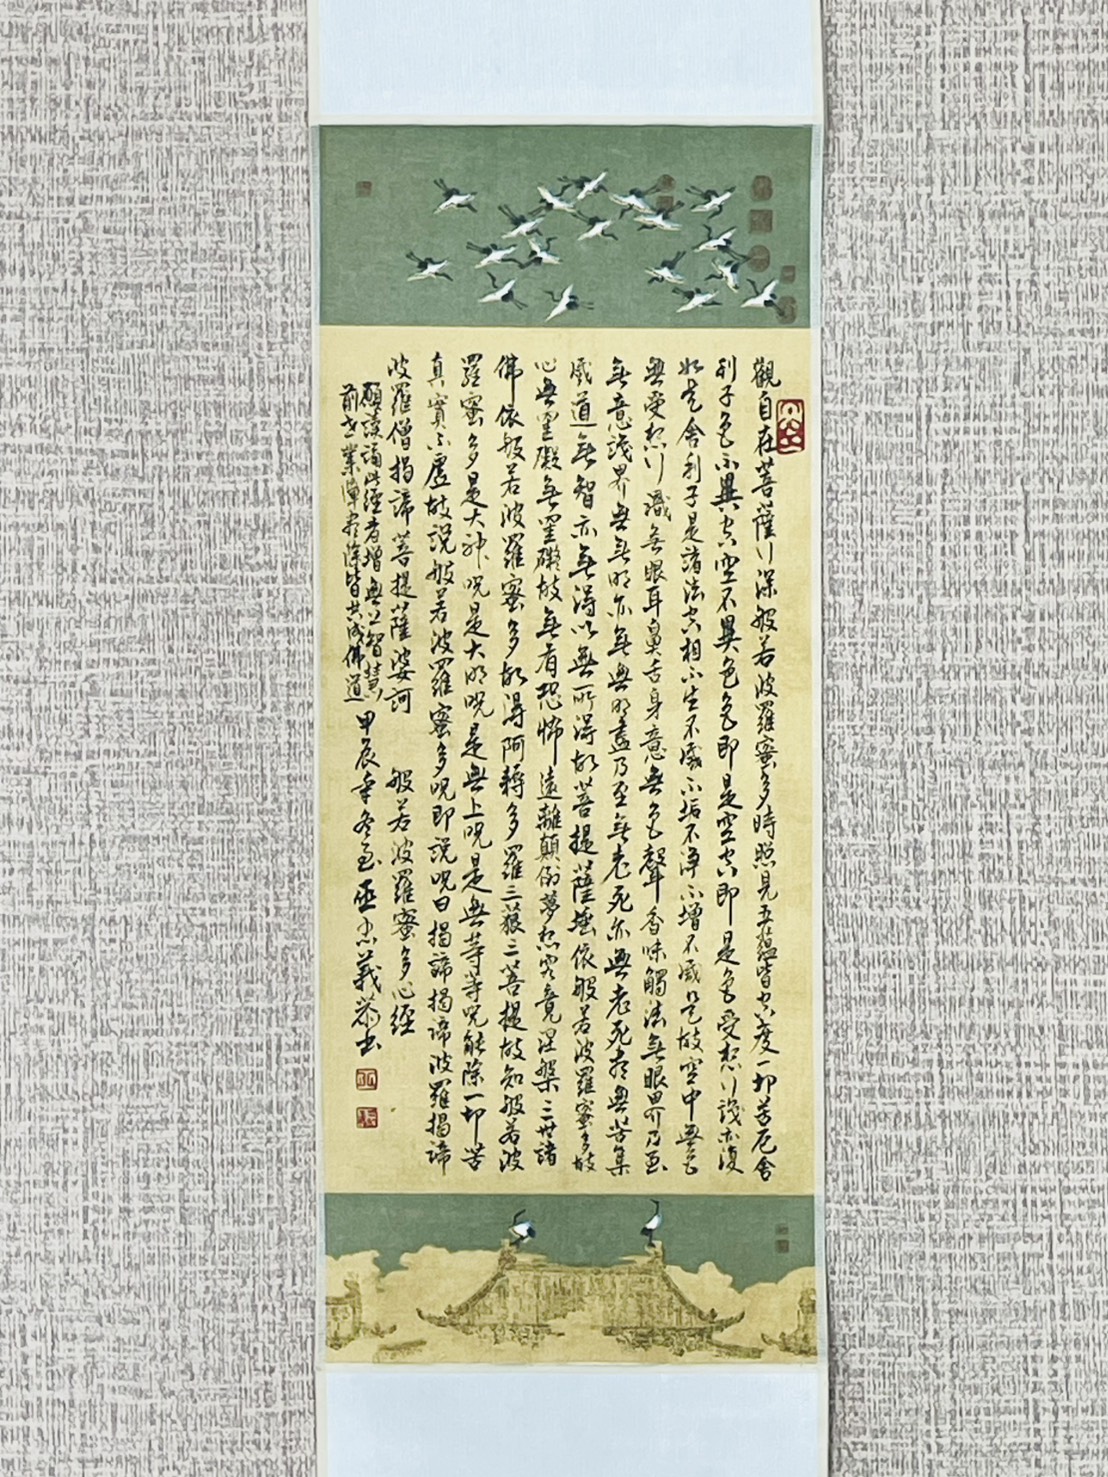 觀自在菩薩行深般若波羅蜜多時照見五蘊皆空度一切苦厄舍
利子色不異空空不異色色即是空空即是色受想行識亦復
如是舍利子是諸法空相不生不滅不垢不淨不增不減是故空中無色
無受想行識無眼耳鼻舌身意無色聲香味觸法無眼界乃至
無意識界無無明亦無無明盡乃至無老死亦無老死盡無苦集
滅道無智亦無得以無所得故菩提薩埵依般若波羅蜜多故
心無罣礙無罣礙故無有恐怖遠離顛倒夢想究竟涅槃三世諸
佛依般若波羅蜜多故得阿耨多羅三藐三菩提故知般若波
羅蜜多是大神呪是大明呪是無上呪是無等等呪能除一切苦
真實不虛故說般若波羅蜜多呪即說呪曰揭諦揭諦波羅揭諦
波羅僧揭諦菩提薩婆訶 般若波羅蜜多心經
願讀誦此經者增無上智慧
前世業障盡除皆共成佛道
甲辰年冬至 忠義恭書